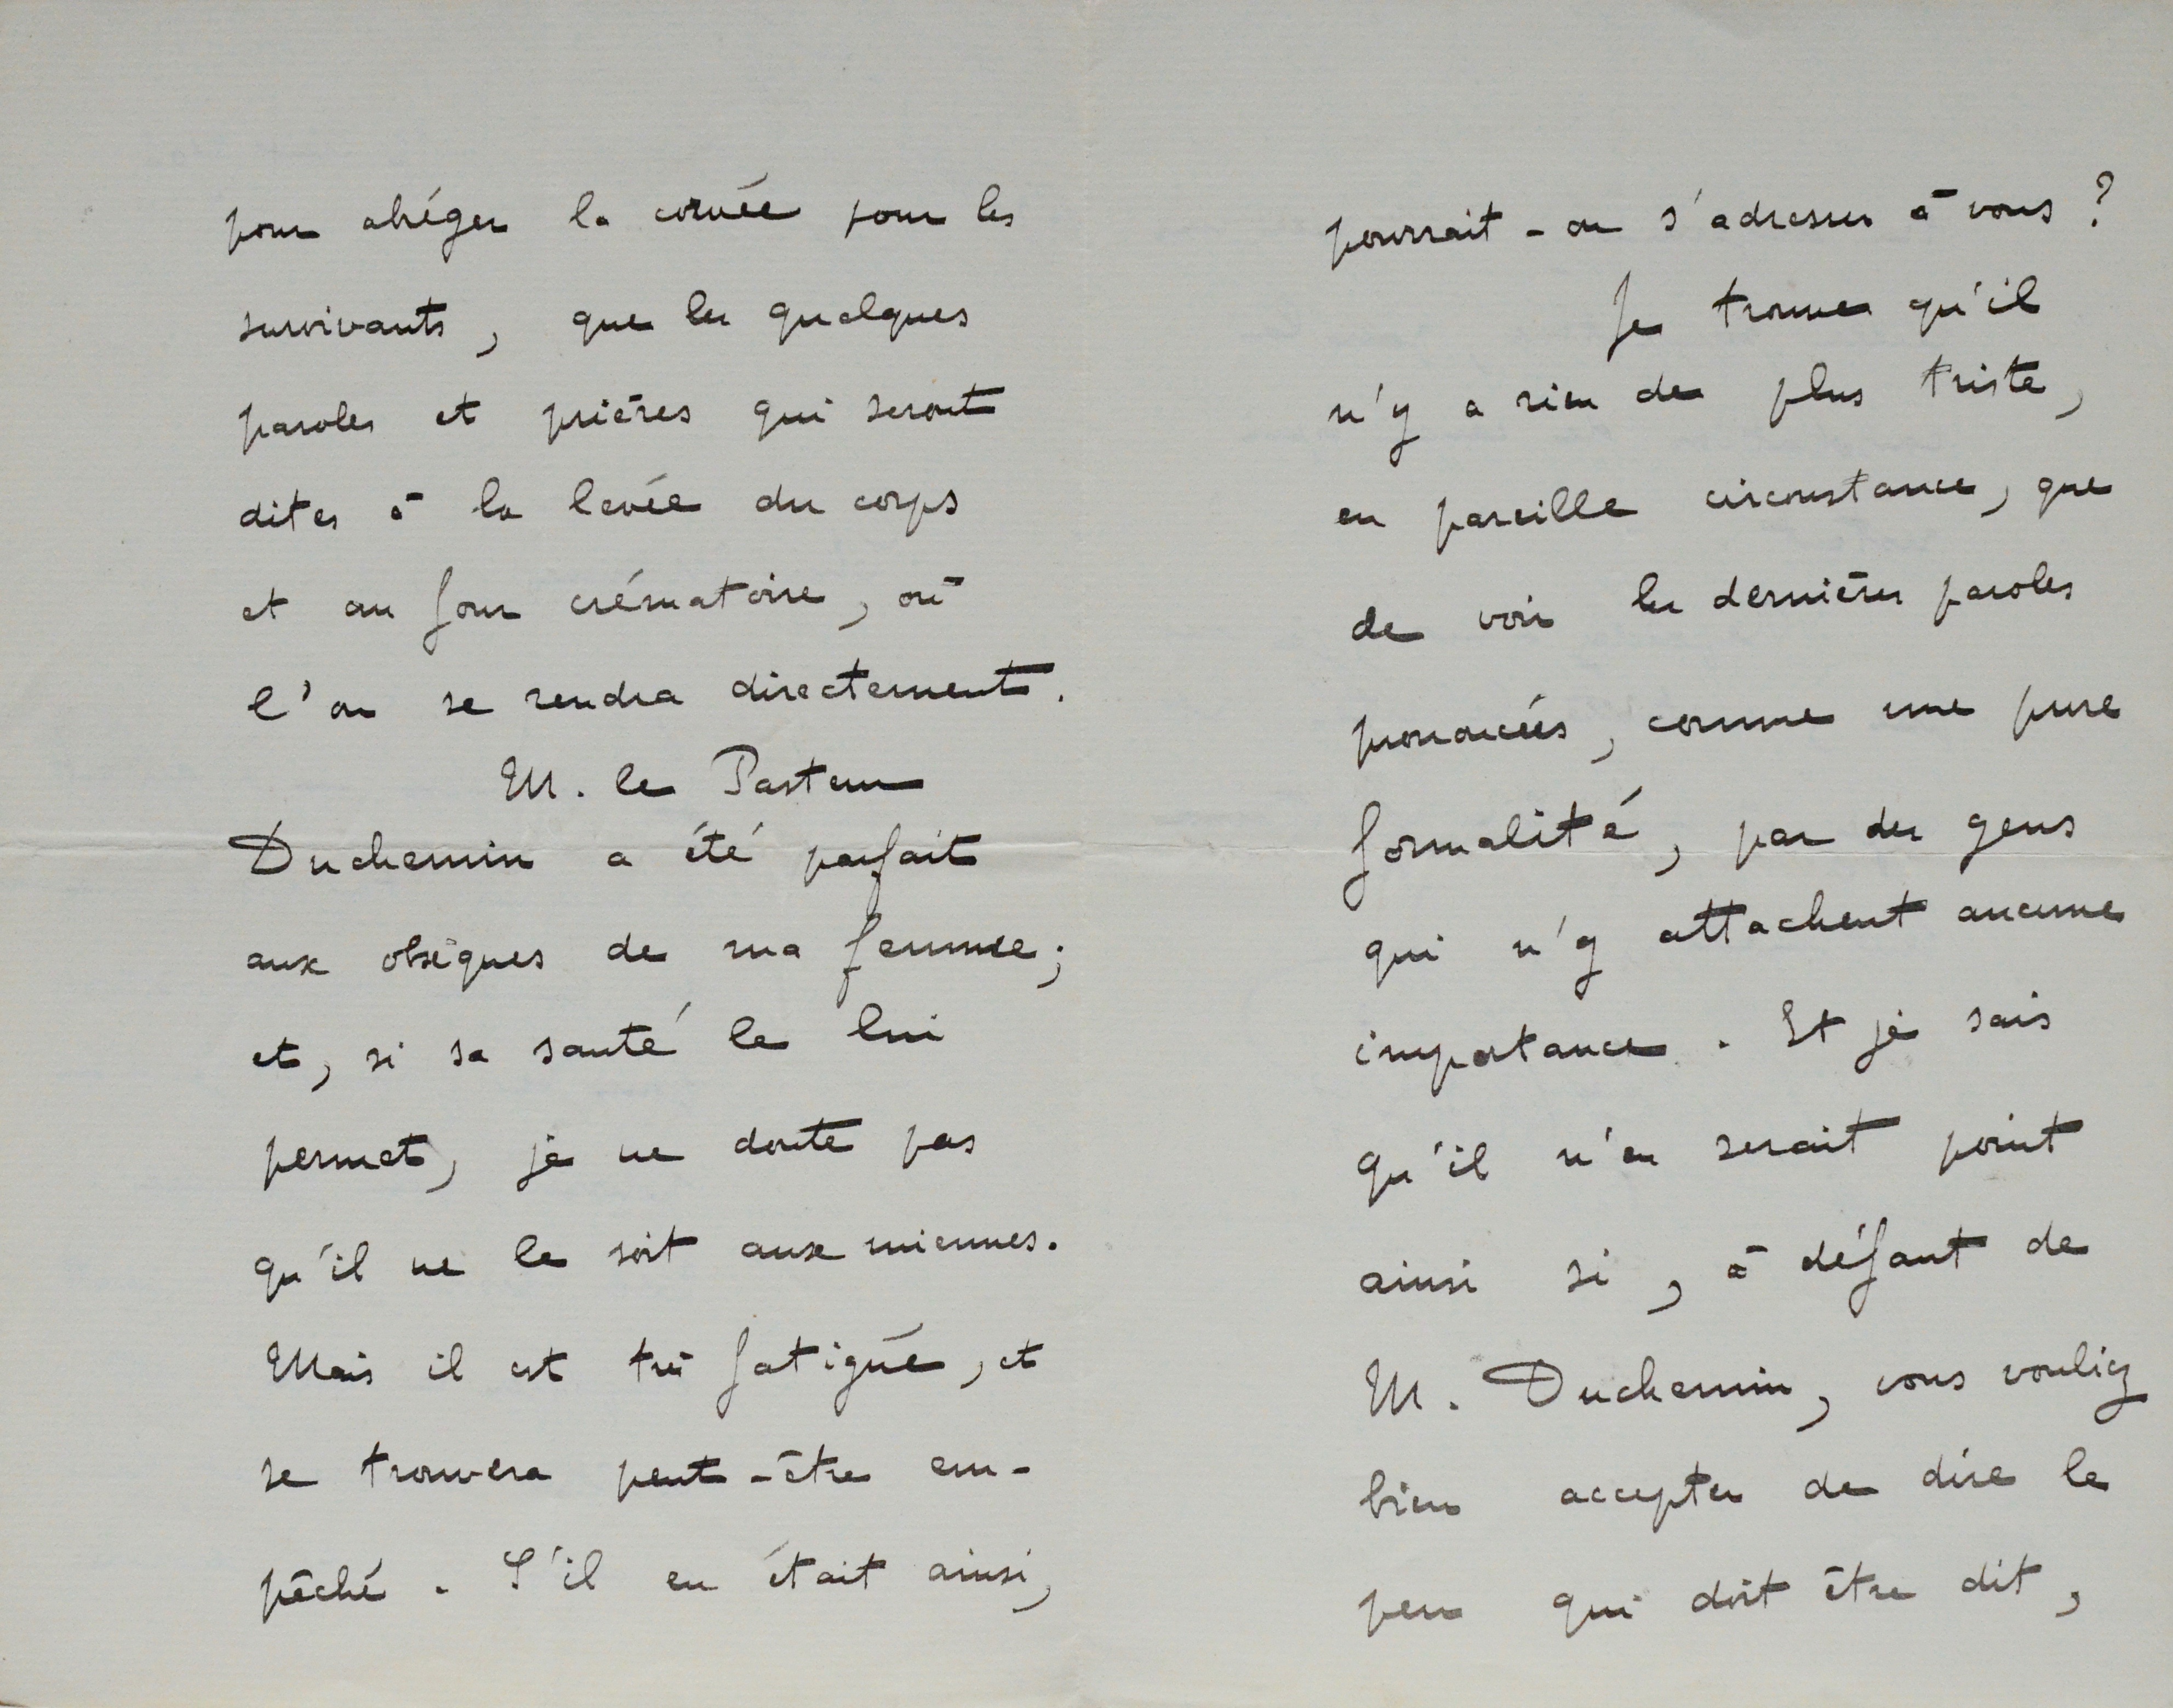 pour abréger la corvée pour les
survivants, que les quelques
paroles et prières qui seront
dites à la levée du corps
et au four crématoire, où
l'on se rendra directement.
M. le Pasteur
Duchemin a été parfait
aux obsèques de ma femme;
et, si sa santé le lui
permet, je ne doute pas
qu'il ne le soit aux miennes.
Mais il est très fatigué, et
se trouvera peut-être em-
pêché. S'il en était ainsi,
pourrait-on s'adresser à vous ?
Je trouve qu'il
n'y a rien de plus triste,
en pareille circonstance, que
de voir les dernières paroles
prononcées, comme une pure
formalité, par des gens
qui n'y attachent aucune
importance. Et je sais
qu'il n'en serait point
ainsi si, à défaut de
M. Duchemin, vous vouliez
bien accepter de dire le
peu qui doit être dit,